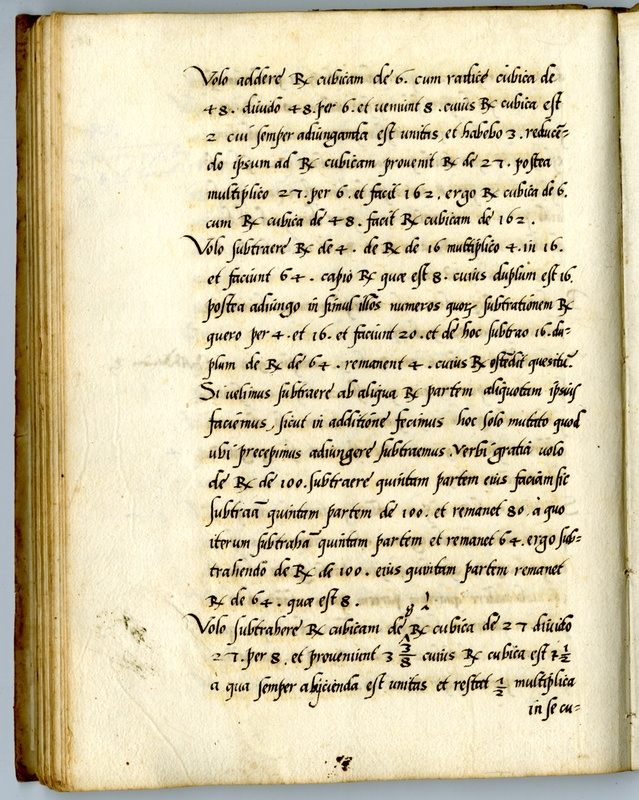 Volo addere ℞ cubicam de 6. cum radicē cubica de
48. diuido 48. per 6. et ueniunt 8. cuius ℞ cubica est
2 cui semper adiungenda est unitas, et habebo 3. reducē=
do ipsum ad ℞ cubicam prouenit ℞ de 27. postea
multiplico 27. per 6. et facit 162, ergo ℞ cubica de 6.
cum ℞ cubica de 48. facit ℞ cubicam de 162.
Volo subtraere ℞ de 4. de ℞ de 16 multiplico 4. in 16.
et faciunt 64. capio ℞ quæ est 8. cuius duplum est 16.
postea adiungo in simul illos numeros quoꝝ subtrationem ℞
quero per 4. et 16. et faciunt 20. et de hoc subtrao 16. du=
plum de ℞ de 64. remanent 4. cuius ℞ ostēdit quesitū.
Si uelimus subtraere ab aliqua ℞ partem aliquotam ipsius
faciemus, sicut in additione fecimus hoc solo mutato quod
ubi precepimus adiungere subtraemus. Verbi gratia uolo
de ℞ de 100. subtraere quintam partem eius faciam sic
subtraā quintam partem de 100. et remanet 80. à quo
iterum subtrahā quintam partem et remanet 64. ergo sub=
trahendo de ℞ de 100. eius quintam partem remanet
℞ de 64. quæ est 8.
8
Volo subtrahere ℞ cubicam de ℞ cubica de 27 diuido
27. per 8. et proueniunt 3 3/8 cuius ℞ cubica est 1 1/2
à qua semper abijcienda est unitas et restat 1/2 multiplica
in se cu=